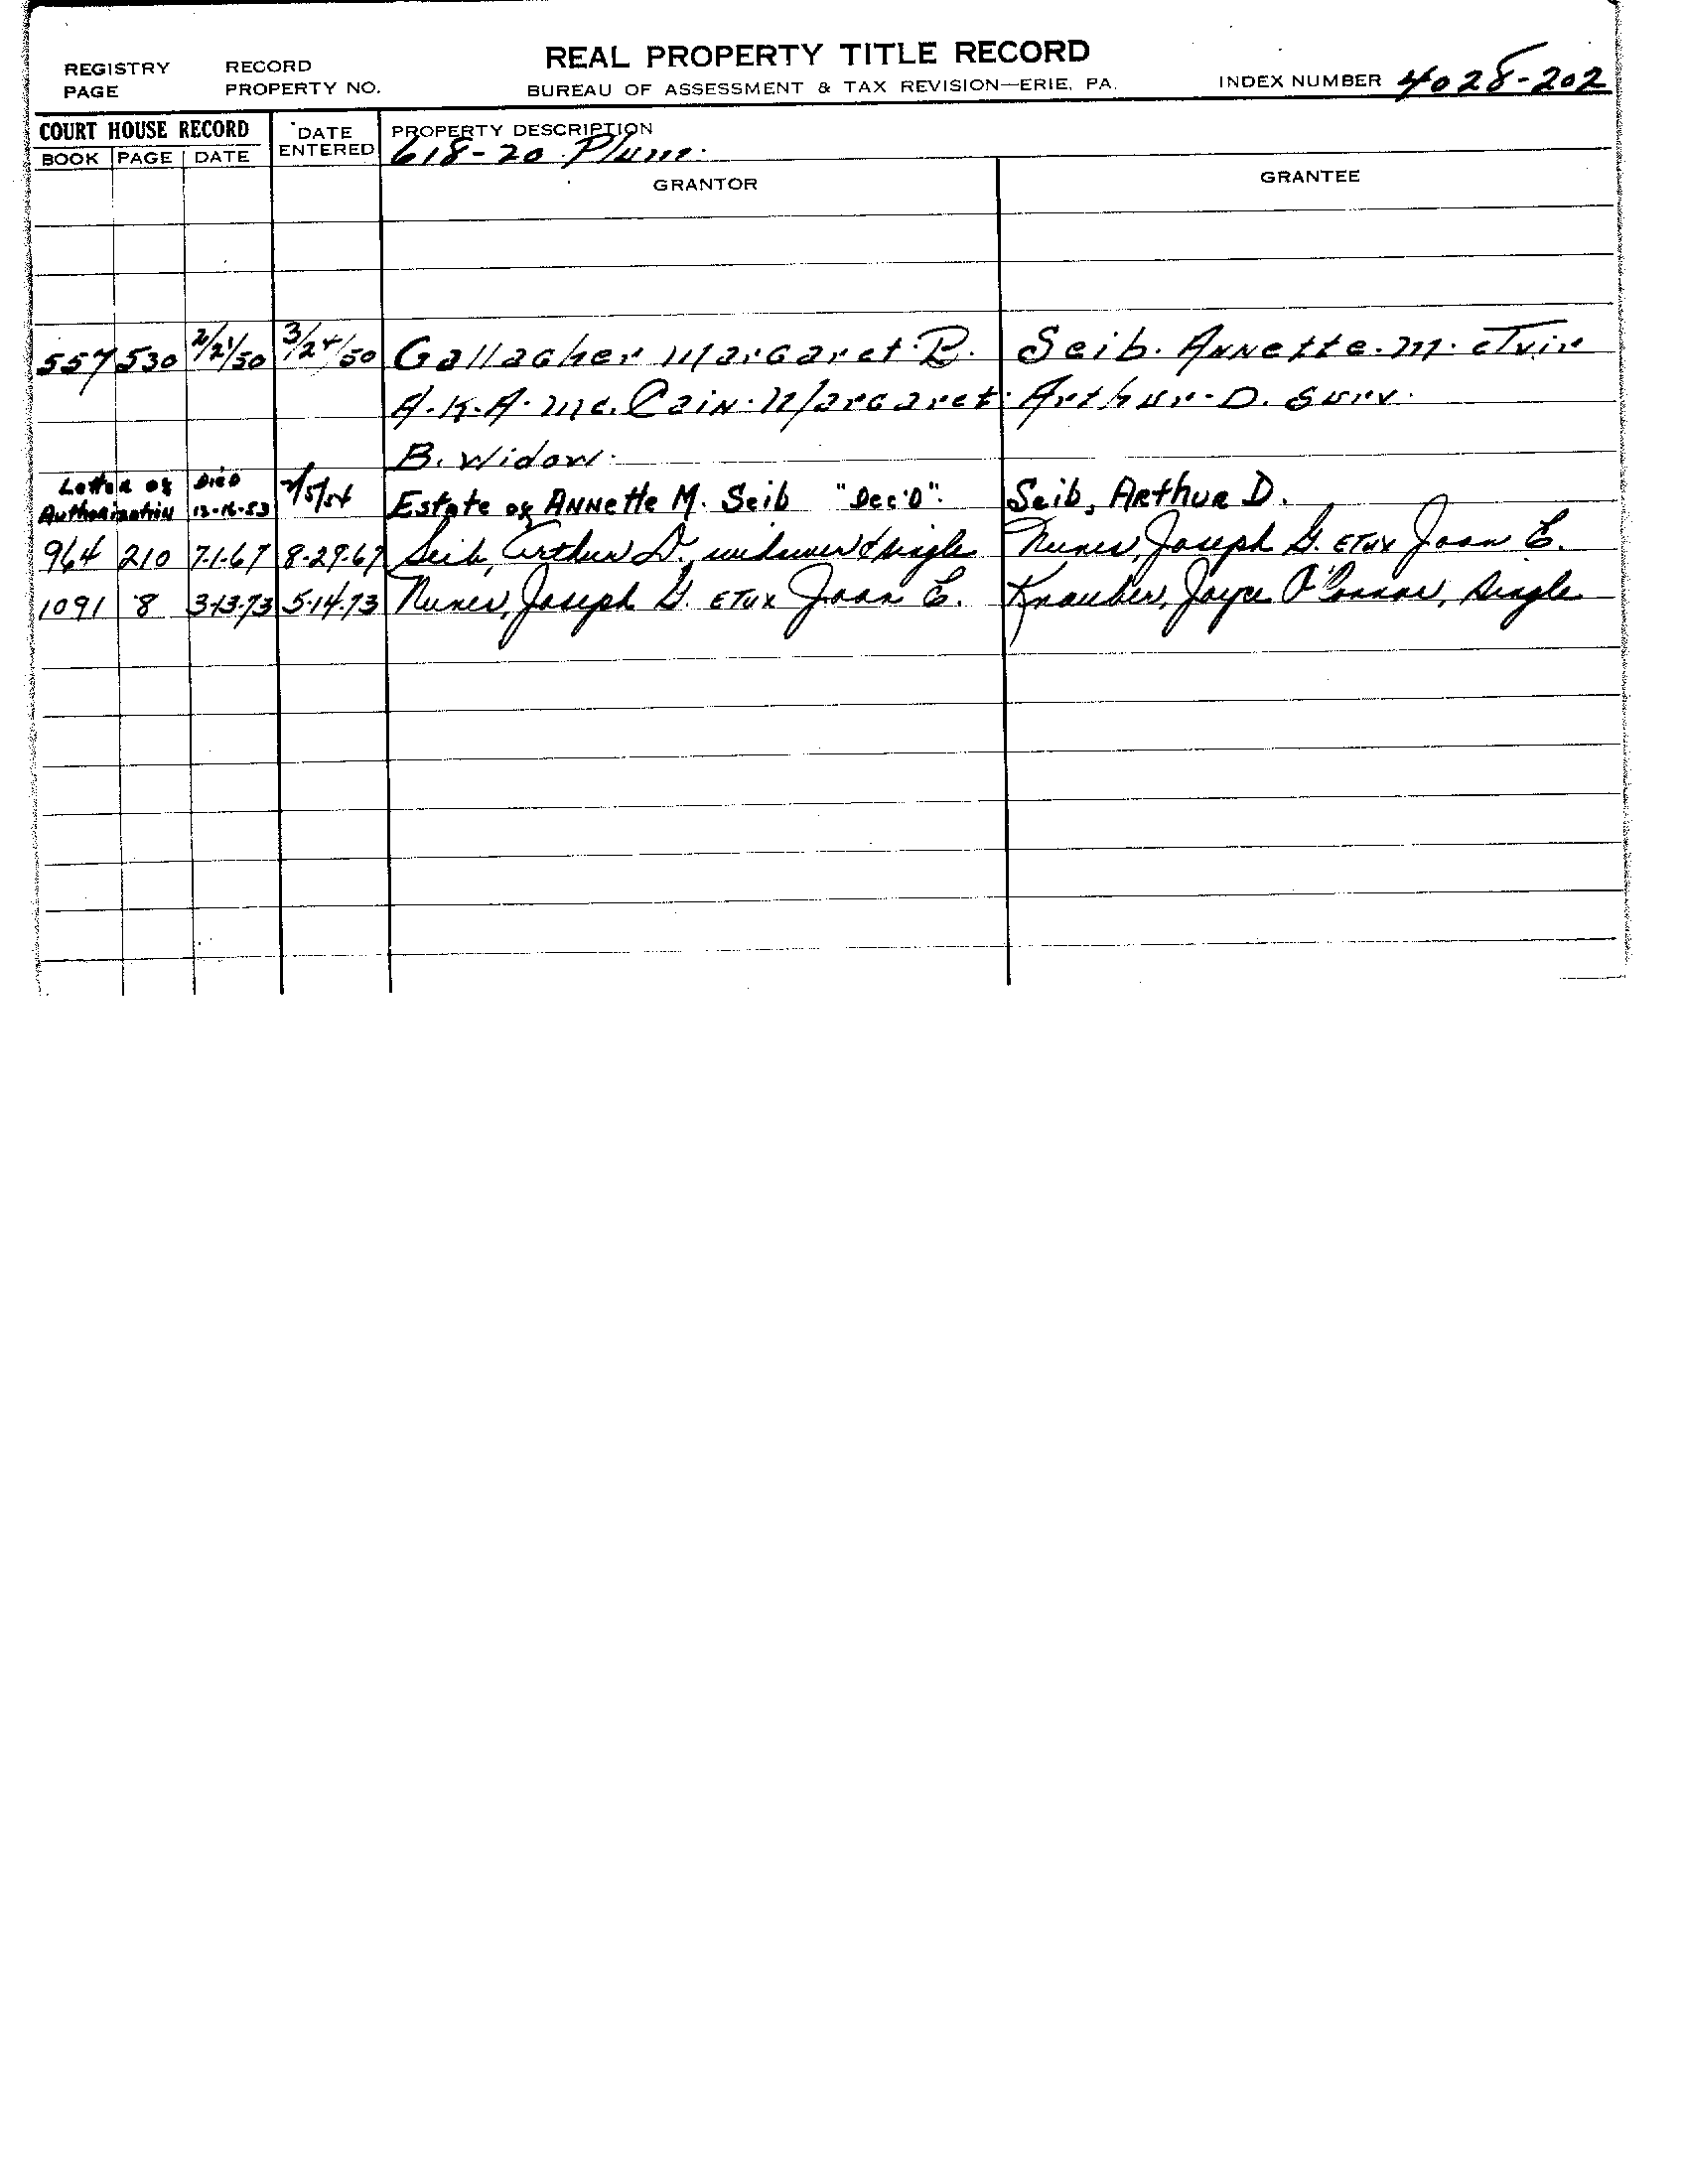 REAL PROPERTY TITLE RECORD
REGISTRY PAGE RECORD PROPERTY NO. BUREAU OF ASSESSMENT & TAX REVISION—ERIE, PA. INDEX NUMBER 4028-202
COURT HOUSE RECORD DATE ENTERED PROPERTY DESCRIPTION
BOOK PAGE DATE 618-20 Plum.
GRANTOR GRANTEE
557 530 2/21/50 3/24/50 Gallagher Margaret B. Seib. Annette. M. etvir
A.K.A. Mc. Cain. Margaret Arthur. D. Surv.
B. Widow.
Letter of Authorization Died 12-16-53 2/5/54 Estate of Annette M. Seib "Dec'D". Seib, Arthur D.
964 210 7-1-67 8-29-67 Seib, Arthur D., widower & single Nunes, Joseph G. ETUX Joan E.
1091 8 3-13-73 5-14-73 Nunes, Joseph G. ETUX Joan E. Knauber, Joyce O'Connor, single